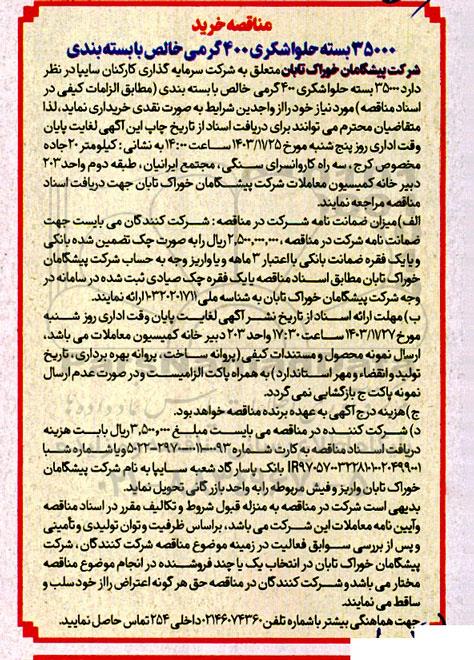 مناقصه خرید
۳۵۰۰۰ بسته حلواشکری ۴۰۰ گرمی خالص با بسته بندی
شرکت پیشگامان خوراک تابان متعلق به شرکت سرمایه گذاری کارکنان سایپا در نظر
دارد ۳۵۰۰۰ بسته حلواشکری ۴۰۰ گرمی خالص با بسته بندی (مطابق الزامات کیفی در
اسناد مناقصه) مورد نیاز خود را از واجدین شرایط به صورت نقدی خریداری نماید، لذا
متقاضیان محترم می توانند برای دریافت اسناد از تاریخ چاپ این آگهی لغایت پایان
وقت اداری روز پنج شنبه مورخ ۱۴۰۳/۱۱/۲۵ ساعت ۱۴:۰۰ به نشانی: کیلومتر ۲۰ جاده
مخصوص کرج، سه راه کاروانسرای سنگی، مجتمع ایرانیان، طبقه دوم واحد ۲۰۳
دبیر خانه کمیسیون معاملات شرکت پیشگامان خوراک تابان جهت دریافت اسناد
مناقصه مراجعه نمایند.
الف) میزان ضمانت نامه شرکت در مناقصه: شرکت کنندگان می بایست جهت
ضمانت نامه شرکت در مناقصه، ۲,۵۰۰,۰۰۰,۰۰۰ ریال را به صورت چک تضمین شده بانکی
و یا یک فقره ضمانت بانکی با اعتبار ۳ ماهه و یا واریز وجه به حساب شرکت پیشگامان
خوراک تابان مطابق اسناد مناقصه یا یک فقره چک صیادی ثبت شده در سامانه در
وجه شرکت پیشگامان خوراک تابان به شناسه ملی ۱۰۳۲۰۲۰۱۷۱۱ ارائه نمایند.
ب) مهلت ارائه اسناد از تاریخ نشر آگهی لغایت پایان وقت اداری روز شنبه
مورخ ۱۴۰۳/۱۱/۲۷ ساعت ۱۷:۳۰ واحد ۲۰۳ دبیر خانه کمیسیون معاملات می باشد،
ارسال نمونه محصول و مستندات کیفی (پروانه ساخت، پروانه بهره برداری، تاریخ
تولید و انقضاء و مهر استاندارد) به همراه پاکت الزامیست و در صورت عدم ارسال
نمونه پاکت ج بازگشایی نمی گردد.
ج) هزینه درج آگهی به عهده برنده مناقصه خواهد بود.
د) شرکت کننده در مناقصه می بایست مبلغ ۳,۵۰۰,۰۰۰ ریال بابت هزینه
دریافت اسناد مناقصه به کارت شماره و یا شماره شبا
بانک پاسارگاد شعبه سایپا به نام شرکت پیشگامان
خوراک تابان واریز و فیش مربوطه را به واحد بازرگانی تحویل نماید.
بدیهی است شرکت در مناقصه به منزله قبول شروط و تکالیف مقرر در اسناد مناقصه
وآیین نامه معاملات این شرکت می باشد، براساس ظرفیت و توان تولیدی و تأمینی
و پس از بررسی سوابق فعالیت در زمینه موضوع مناقصه شرکت کنندگان، شرکت
پیشگامان خوراک تابان در انتخاب یک یا چند فروشنده در انجام موضوع مناقصه
مختار می باشد و شرکت کنندگان در مناقصه حق هر گونه اعتراض را از خود سلب و
ساقط می نمایند.
جهت هماهنگی بیشتر با شماره تلفن ۰۲۱۴۶۰۷۴۳۶۰ داخلی ۲۵۴ تماس حاصل نمایید.